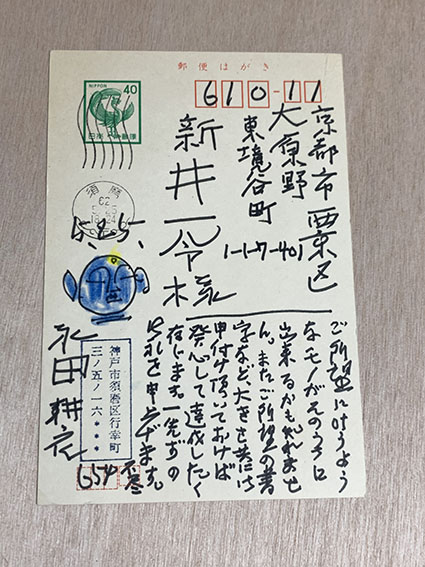 郵便はがき
NIPPON
40
日本郵便
610-11
京都市西京区
大原野
東境谷町
1-1-7-401
新井一令様
須磨
62
18-24
ご所望に叶うよう
なモノがそのうちに
出来るかも知れませ
ん。またご所望の書
字など、大きさ共に
申付け頂いておけば
発心して達成したく
存じます。一先ずの
御礼を申上げます。
不尽
神戸市須磨区行幸町
三ノ五ノ一六
永田耕衣
654